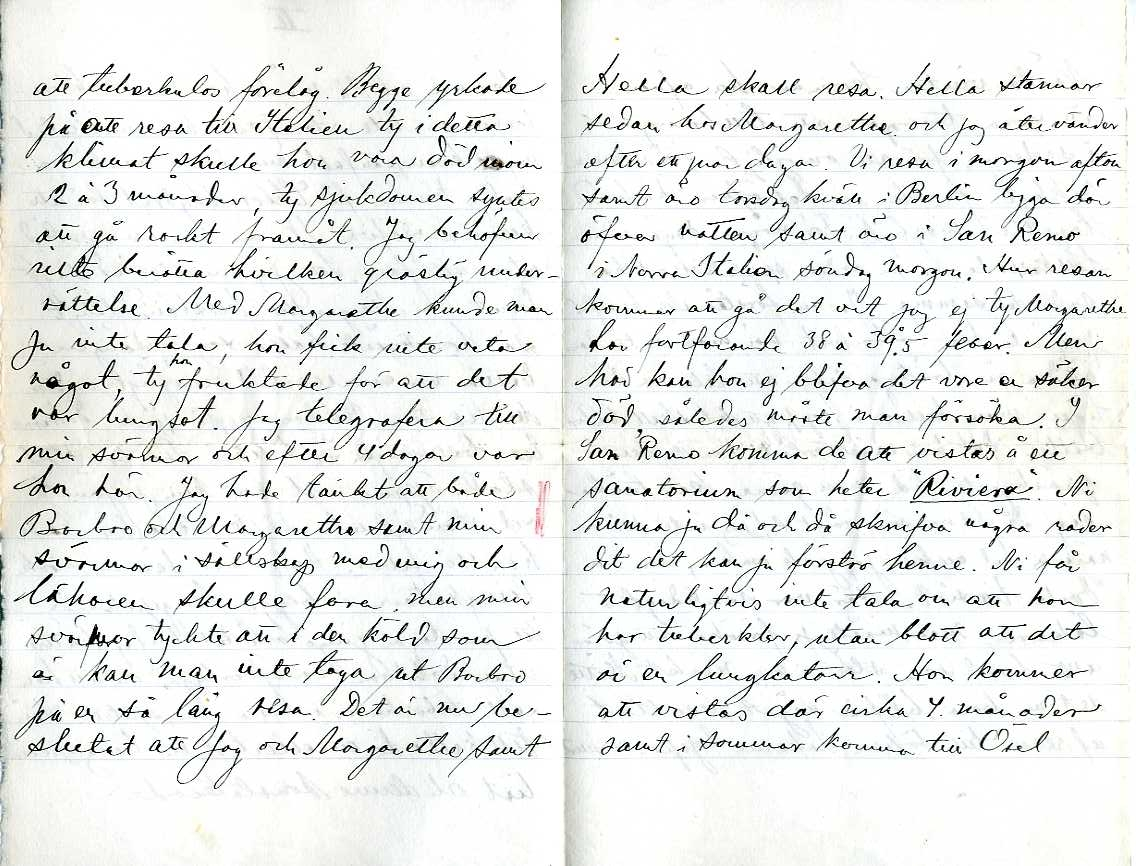 att tuberkulos förelåg. Begge yrkade
på att resa till Italien ty i detta
klimat skulle hon vara död inom
2 à 3 månader, ty sjukdomen syntes
att gå raskt framåt. Jag behöfver
inte berätta hvilken gräslig under-
rättelse. Med Margarethe kunde man
ju inte tala, hon fick inte veta
något, ty hon fruktade för att det
var lungsot. Jag telegrafera till
min svärmor och efter 4 dagar var
hon här. Jag hade tänkt att både
Barbro och Margarethe samt min
svärmor i sällskap med mig och
läkaren skulle fara, men min
svärmor tyckte att i den köld som
är kan man inte taga ut Barbro
på en så lång resa. Det är nu be-
slutat att Jag och Margarethe samt
Hella skall resa. Hella stannar
sedan hos Margarethe och jag återvänder
efter ett par dagar. Vi resa i morgon afton
samt äro torsdag kväll i Berlin ligga där
öfver natten samt äro i San Remo
i Norra Italien söndag morgon. Hur resan
kommer att gå det vet jag ej ty Margarethe
har fortfarande 38 à 39,5 feber. Men
här kan hon ej blifva det vore en säker
död, således måste man försöka. I
San Remo komma de att vistas å ett
sanatorium som heter "Riviera". Ni
kunna ju då och då skrifva några rader
dit det kan ju förströ henne. Ni får
naturligtvis inte tala om att hon
har tuberkler, utan blott att det
är en lungkatarr. Hon kommer
att vistas där cirka 4. månader
samt i sommar komma till Ösel